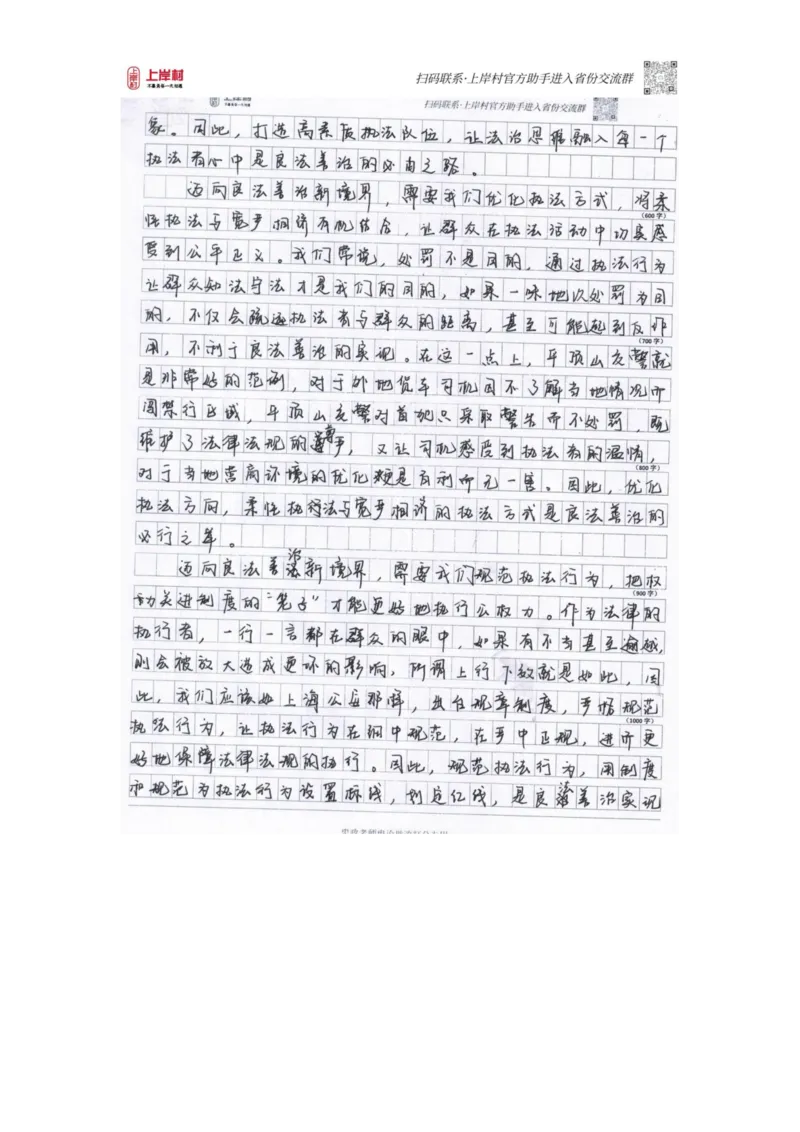 上岸村
不要具备一代沟通
扫码联系·上岸村官方助手进入省份交流群
上岸村
扫码联系·上岸村官方助手进入省份交流群
象。因此,打造高素质执法队伍,让法治思维融入每一个
执法者心中是良法善治的必由之路。
迈向良法善治新境界,需要我们优化执法方式,将柔
(600字)
性执法与宽严相济有机结合,让群众在执法活动中切实感
受到公平正义。我们常说,处罚不是目的,通过执法行为
让群众知法守法才是我们的目的,如果一味地以处罚为目
的,不仅会疏远执法者与群众的距离,甚至可能起到反作
(700字)
用,不利于良法善治的实现。在这一点上,平顶山交警就
是非常好的范例,对于外地货车司机因不了解当地情况而
闯禁行区域,平顶山交警对首犯只采取警告而不处罚,既
维护了法律法规的尊严,又让司机感受到执法者的温情,
对于当地营商环境的优化更是有利而无一害。因此,优化
(800字)
执法方向,柔性执行法与宽严相济的执法方式是良法善治的
必行之举。
迈向良法善治新境界,需要我们规范执法行为,把权
(900字)
力关进制度的“笼子”才能更好地执行公权力。作为法律的
执行者,一行一言都在群众的眼中,如果有不当甚至逾越,
则会被放大造成更坏的影响,所谓上行下效就是如此,因
此,我们应该如上海公安那样,出台规章制度,手册规范
(1000字)
执法行为,让执法行为在纲中规范,在手中正规,进而更
好地保障法律法规的执行。因此,规范执法行为,用制度
和规范为执法行为设置标线,划定红线,是良法善治实现